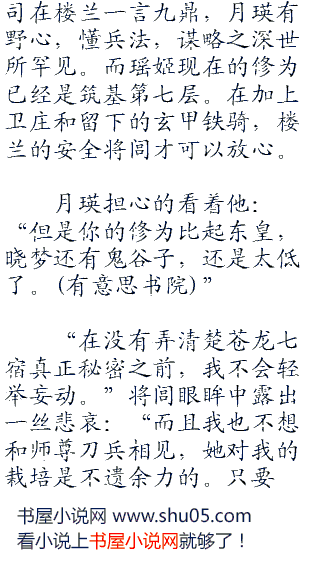 司在楼兰一言九鼎，月瑛有
野心，懂兵法，谋略之深世
所罕见。而瑶姬现在的修为
已经是筑基第七层。在加上
卫庄和留下的玄甲铁骑，楼
兰的安全将闾才可以放心。
月瑛担心的看着他：
“但是你的修为比起东皇，
晓梦还有鬼谷子，还是太低
了。(有意思书院)”
“在没有弄清楚苍龙七
宿真正秘密之前，我不会轻
举妄动。”将闾眼眸中露出
一丝悲哀：“而且我也不想
和师尊刀兵相见，她对我的
栽培是不遗余力的。只要
书屋小说网 www.shu05.com
看小说上书屋小说网就够了！